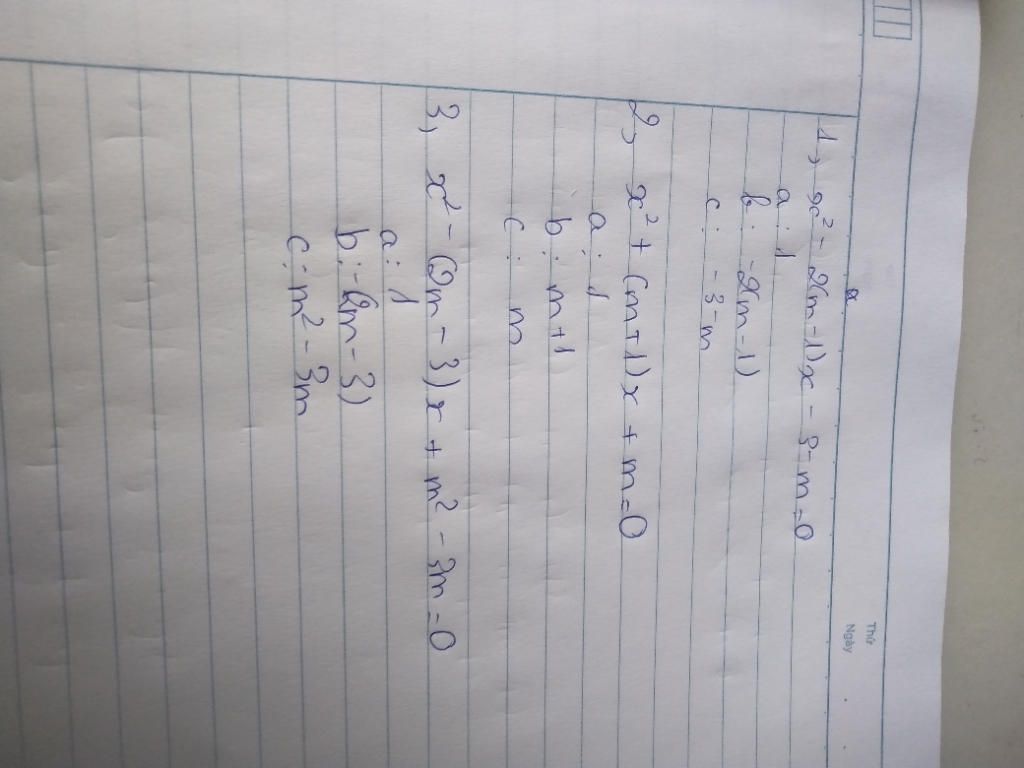 Thứ
Ngày
1, x² - 2(m-1)x - 3-m=0
a: 1
b: -2(m-1)
c: -3-m
2, x² + (m+1)x + m=0
a: 1
b: m+1
c: m
3, x² - (2m-3)x + m² - 3m=0
a: 1
b: -(2m-3)
c: m² - 3m